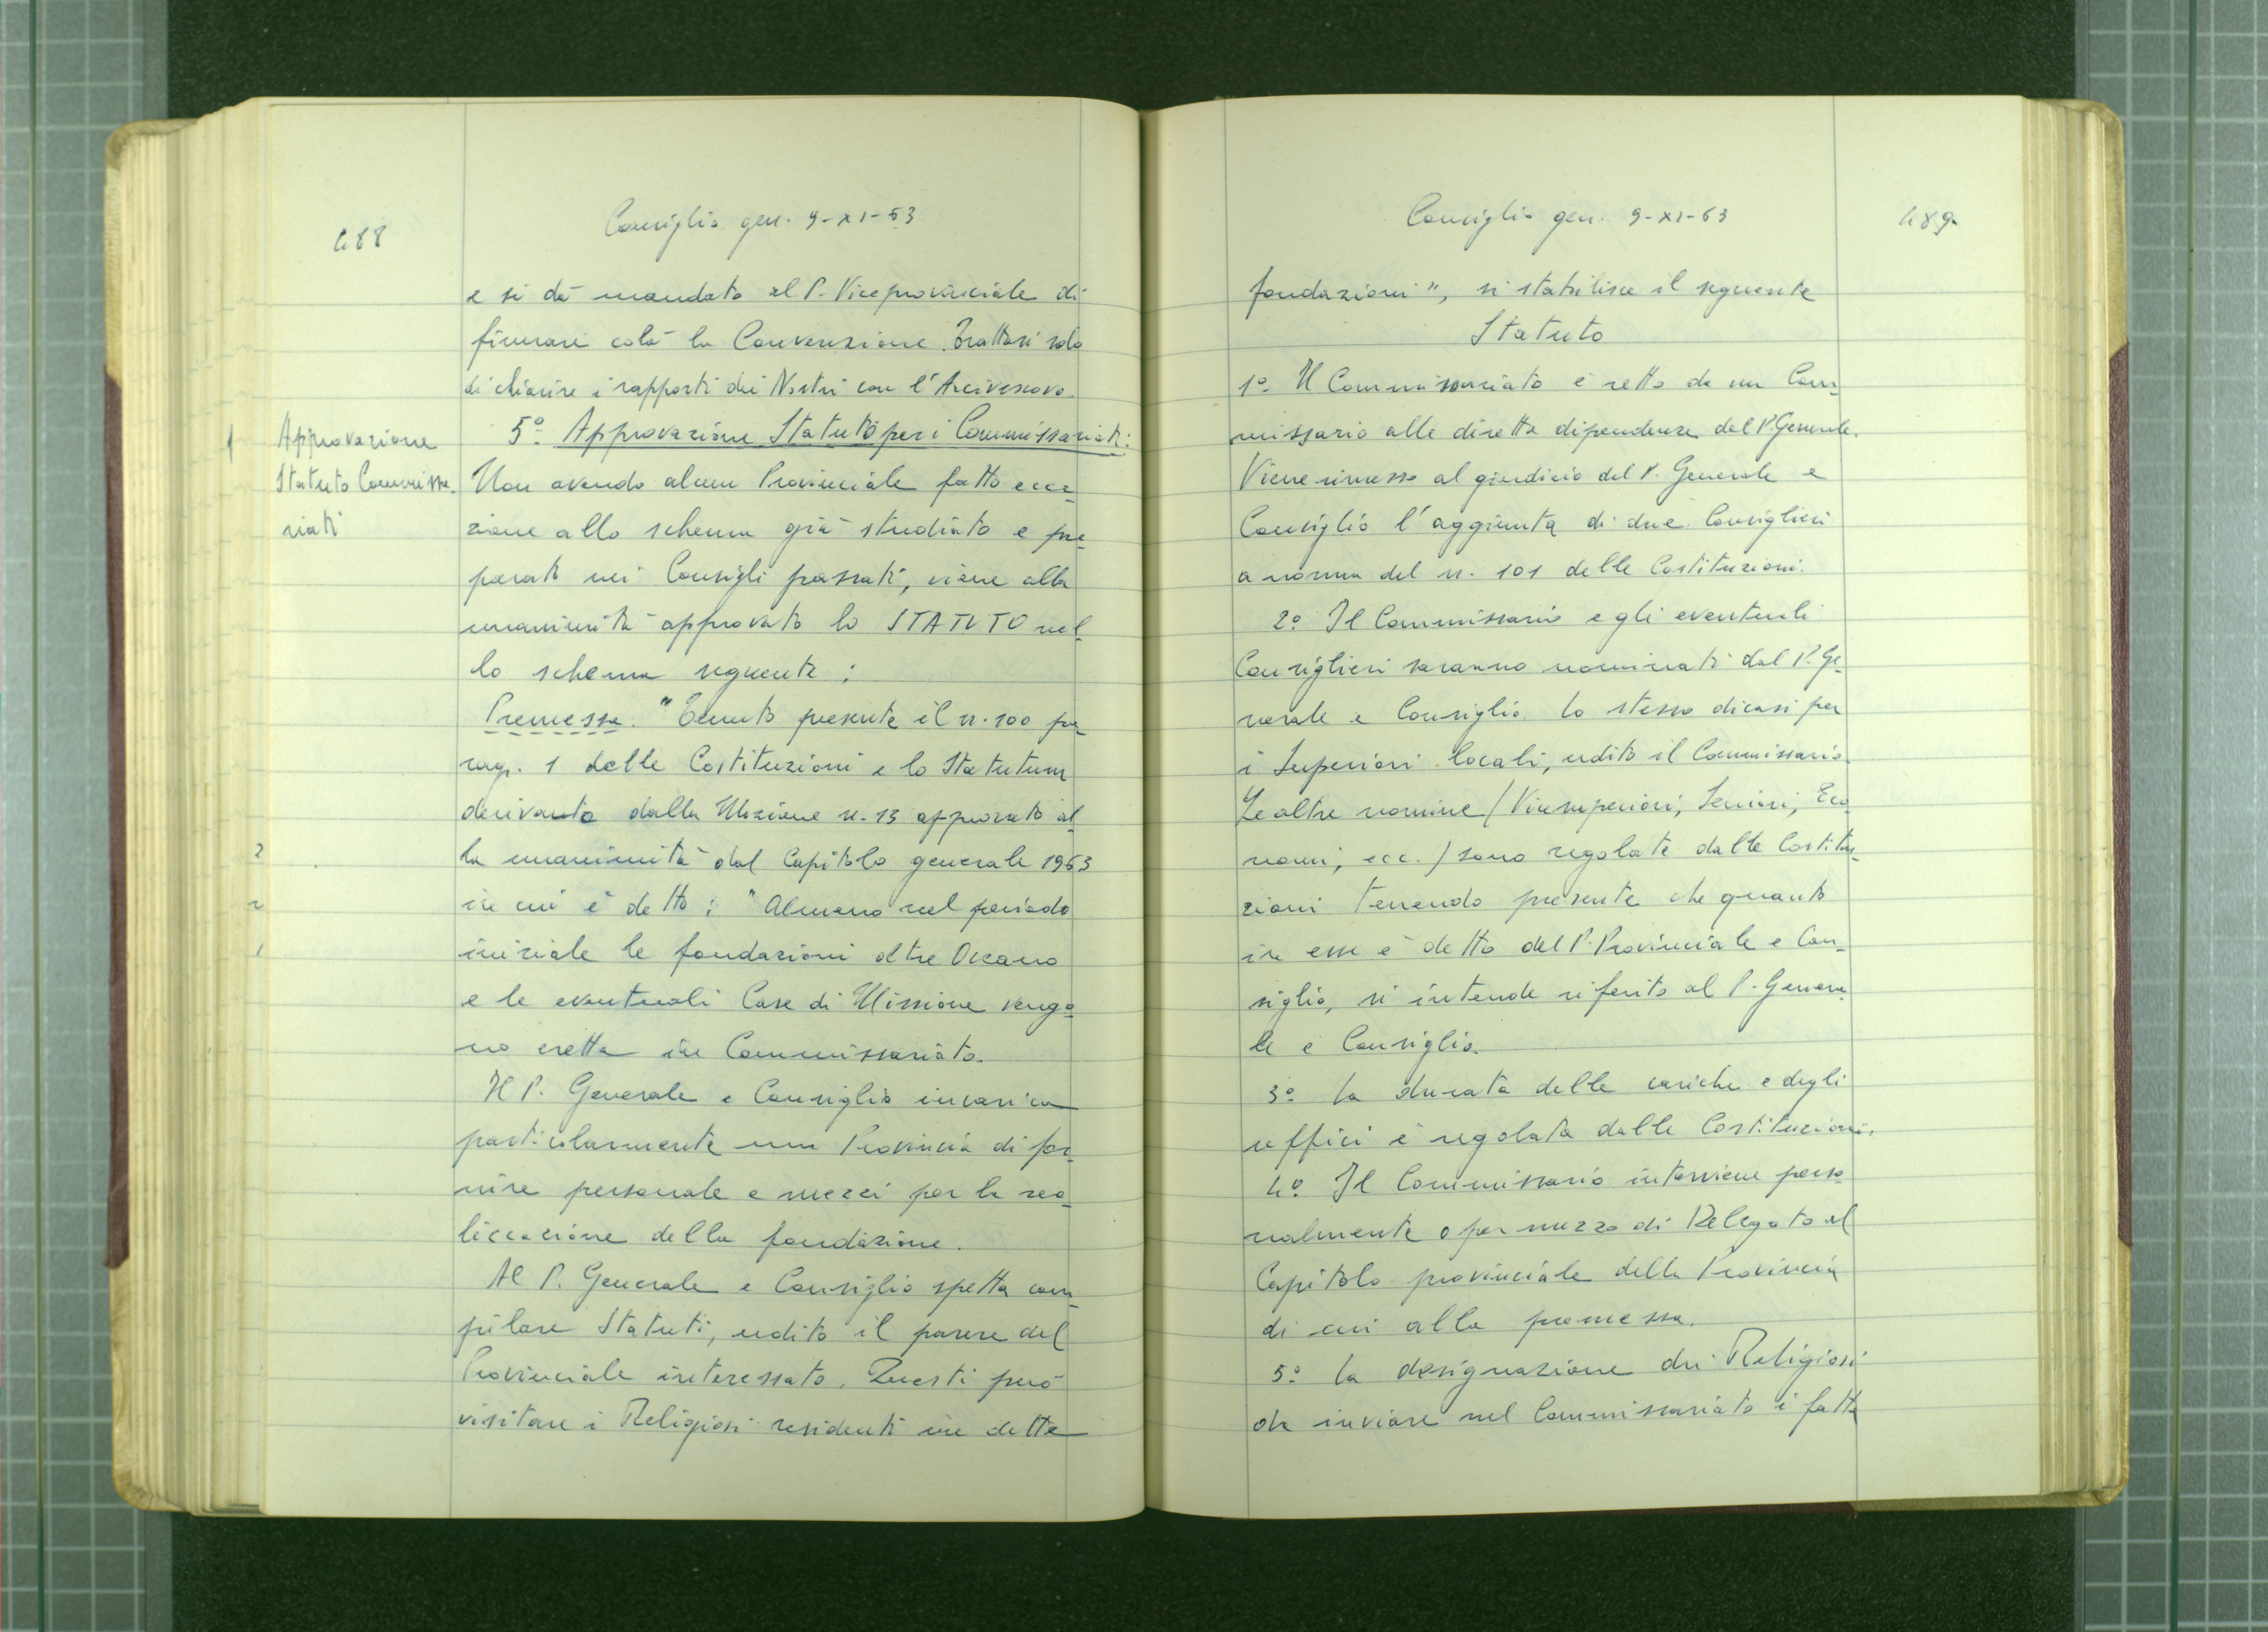 488
Consiglio gen. 9-XI-63
e si dà mandato al P. Viceprovinciale di
firmare colà la Convenzione. Trattasi solo
di chiarire i rapporti dei Nostri con l'Arcivescovo.
Approvazione
Statuto Commissa_
riati
5º. Approvazione Statuto per i Commissariati:
Non avendo alcun Provinciale fatto ecce_
zione allo schema già studiato e pre_
parato nei Consigli passati, viene alla
unanimità approvato lo STATUTO nel_
lo schema seguente:
Premessa. "Tenuto presente il n. 100 pa_
rag. 1 delle Costituzioni e lo Statutum
derivante dalla Mozione n. 13 approvato al_
la unanimità dal Capitolo generale 1963
in cui è detto: "Almeno nel periodo
iniziale le fondazioni oltre Oceano
e le eventuali Case di Missione vengo_
no erette in Commissariato.
Il P. Generale e Consiglio incarica
particolarmente una Provincia di for_
nire personale e mezzi per la rea_
lizzazione della fondazione.
Al P. Generale e Consiglio spetta com_
pilare Statuti, udito il parere del
Provinciale interessato. Questi può
visitare i Religiosi residenti in dette
Consiglio gen. 9-XI-63
489
fondazioni", si stabilisce il seguente
Statuto
1º. Il Commissariato è retto da un Com_
missario alle dirette dipendenze del P. Generale.
Viene rimesso al giudizio del P. Generale e
Consiglio l'aggiunta di due Consiglieri
a norma del n. 101 delle Costituzioni.
2º Il Commissario e gli eventuali
Consiglieri saranno nominati dal P. Ge_
nerale e Consiglio. Lo stesso dicasi per
i Superiori locali, udito il Commissario.
Le altre nomine (Vicesuperiori, Seniori, Eco_
nomi, ecc.) sono regolate dalle Costitu_
zioni tenendo presente che quanto
in esse è detto del P. Provinciale e Con_
siglio, si intende riferito al P. Genera_
le e Consiglio.
3º La durata delle cariche e degli
uffici è regolata dalle Costituzioni.
4º Il Commissario interviene perso_
nalmente o per mezzo di Delegato al
Capitolo provinciale della Provincia
di cui alla premessa.
5º La designazione dei Religiosi
da inviare nel Commissariato è fatta